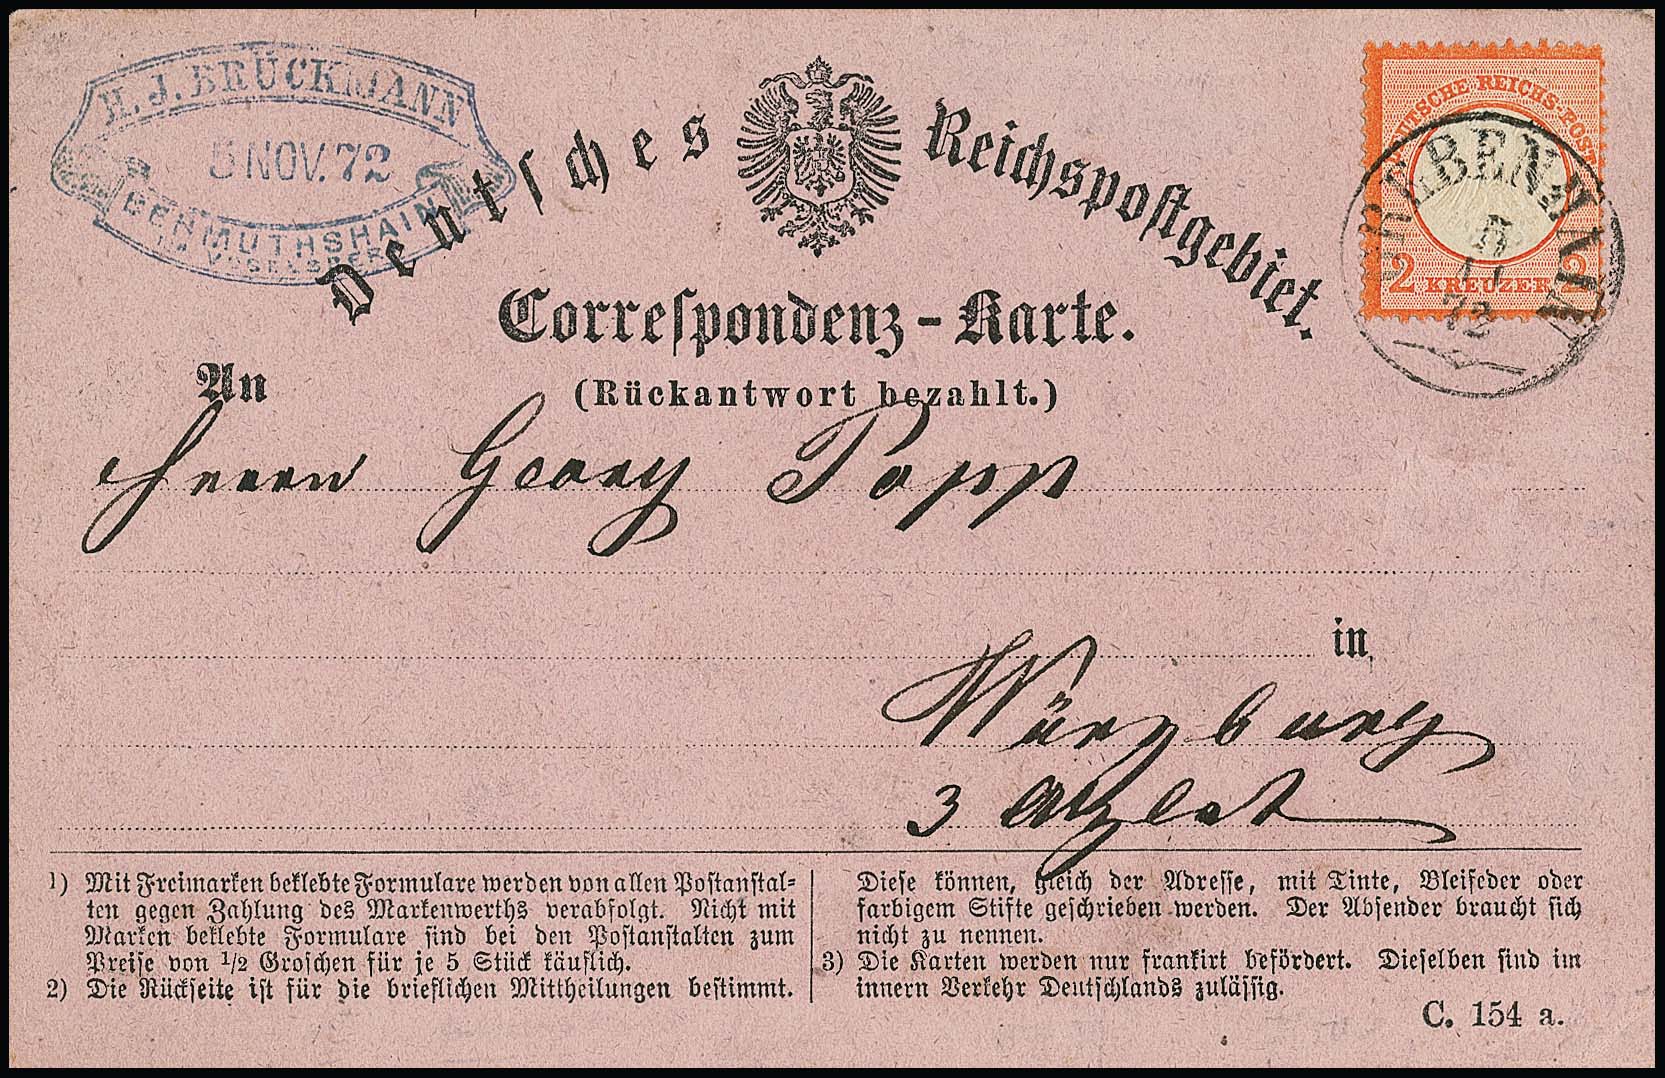 H. J. BRÜCKMANN
5 NOV. 72
BERMUTHSHAIN
VOGELSBERG
Deutsches Reichspostgebiet.
DEUTSCHE REICHS-POST
2 KREUZER 2
GREBENHAIN
5
11
72
Correſpondenz-Karte.
(Rückantwort bezahlt.)
An
Herrn Georg Popp
in
Würzburg
3
1) Mit Freimarken beklebte Formulare werden von allen Poſtanſtal-
ten gegen Zahlung des Markenwerths verabfolgt. Nicht mit
Marken beklebte Formulare ſind bei den Poſtanſtalten zum
Preiſe von 1/2 Groſchen für je 5 Stück käuflich.
2) Die Rückſeite iſt für die brieflichen Mittheilungen beſtimmt.
Dieſe können, gleich der Adreſſe, mit Tinte, Bleifeder oder
farbigem Stifte geſchrieben werden. Der Abſender braucht ſich
nicht zu nennen.
3) Die Karten werden nur frankirt befördert. Dieſelben ſind im
innern Verkehr Deutſchlands zuläſſig.
C. 154 a.